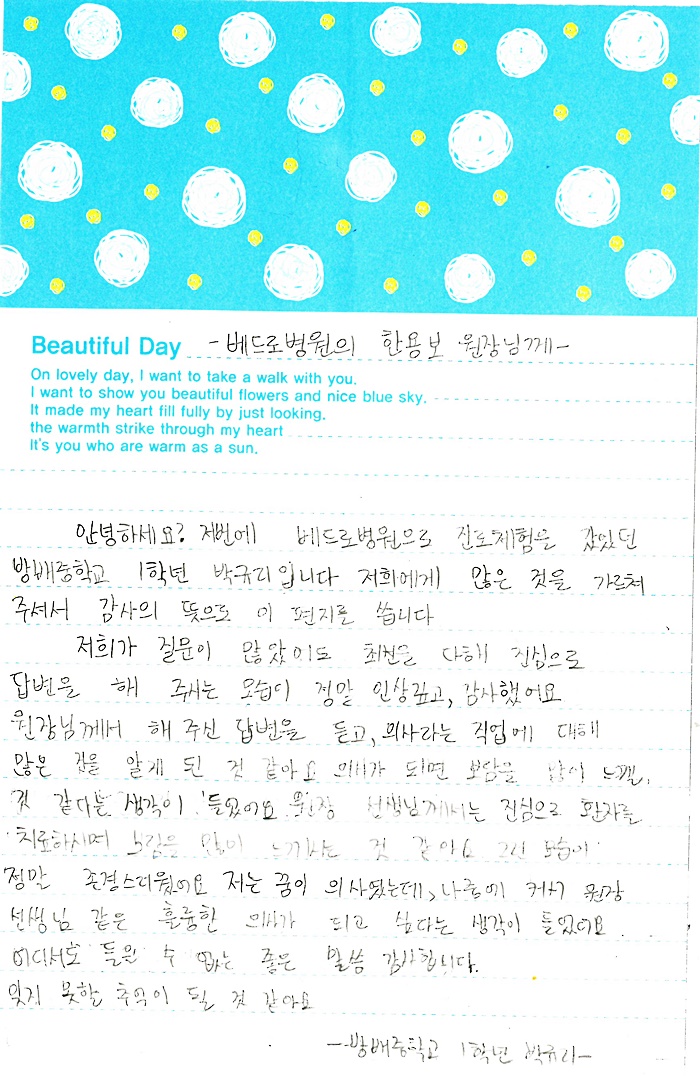 Beautiful Day -베드로병원의 한용보 원장님께-
On lovely day, I want to take a walk with you.
I want to show you beautiful flowers and nice blue sky.
It made my heart fill fully by just looking.
the warmth strike through my heart
It's you who are warm as a sun.
안녕하세요? 저번에 베드로병원으로 진로체험을 갔었던
방배중학교 1학년 박규리입니다 저희에게 많은 것을 가르쳐
주셔서 감사의 뜻으로 이 편지를 씁니다
저희가 질문이 많았이도 최선을 다해 진심으로
답변을 해 주시는 모습이 정말 인상깊고, 감사했어요
원장님께서 해 주신 답변을 듣고, 의사라는 직업에 대해
많은 걸을 알게 된 것 같아요 의사가 되면 보람을 많이 느낄
것 같다는 생각이 들었어요 원장 선생님께서는 진심으로 환자를
치료하시며 보람을 많이 느끼시는 것 같아요 그런 모습이
정말 존경스러웠어요 저는 꿈이 의사였는데, 나중에 커서 원장
선생님 같은 훌륭한 의사가 되고 싶다는 생각이 들었어요
어디서도 들을 수 없는 좋은 말씀 감사합니다.
잊지 못할 추억이 될 것 같아요
-방배중학교 1학년 박규리-